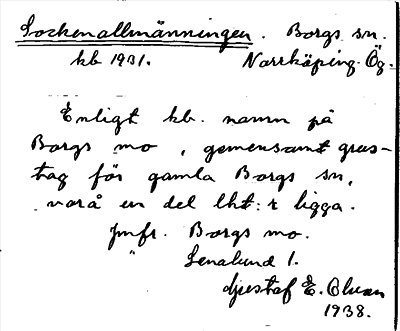 Sockenallmänningen. Borgs sn.
kb 1931. Norrköping. Ög.
Enligt kb. namn på
Borgs mo, gemensamt grus-
tag för gamla Borgs sn,
varå en del lht:r ligga.
Jmfr. Borgs mo.
" Lenalund 1.
Gustaf E. Olsson
1938.